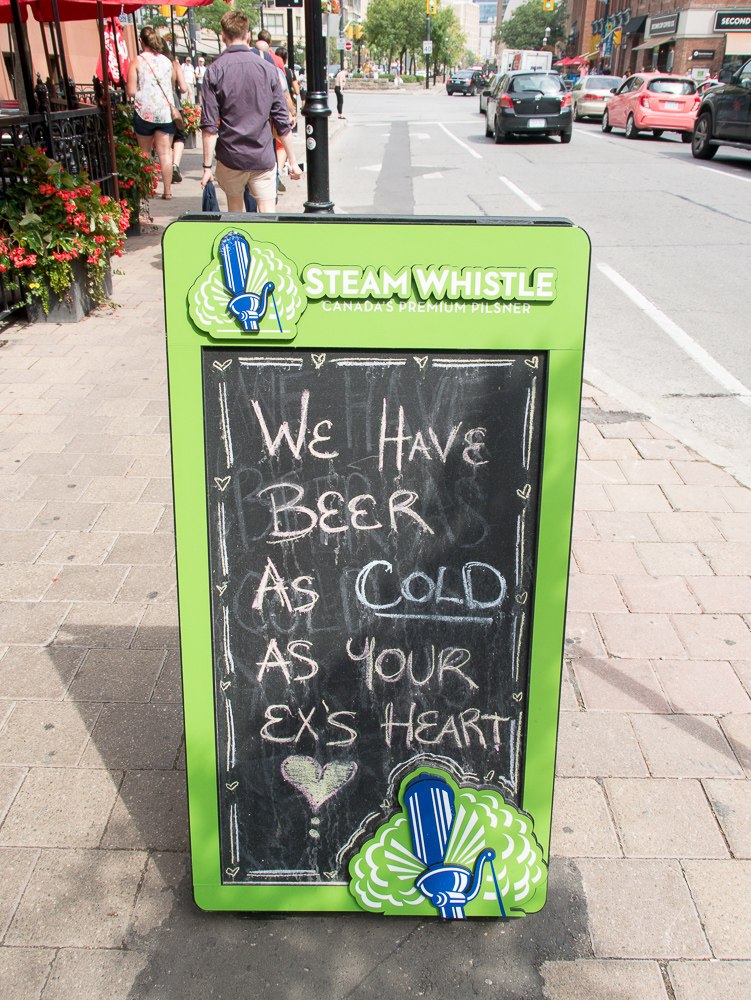 SECOND
STEAM WHISTLE
CANADA'S PREMIUM PILSNER
WE HAVE
BEER
AS COLD
AS YOUR
EX'S HEART